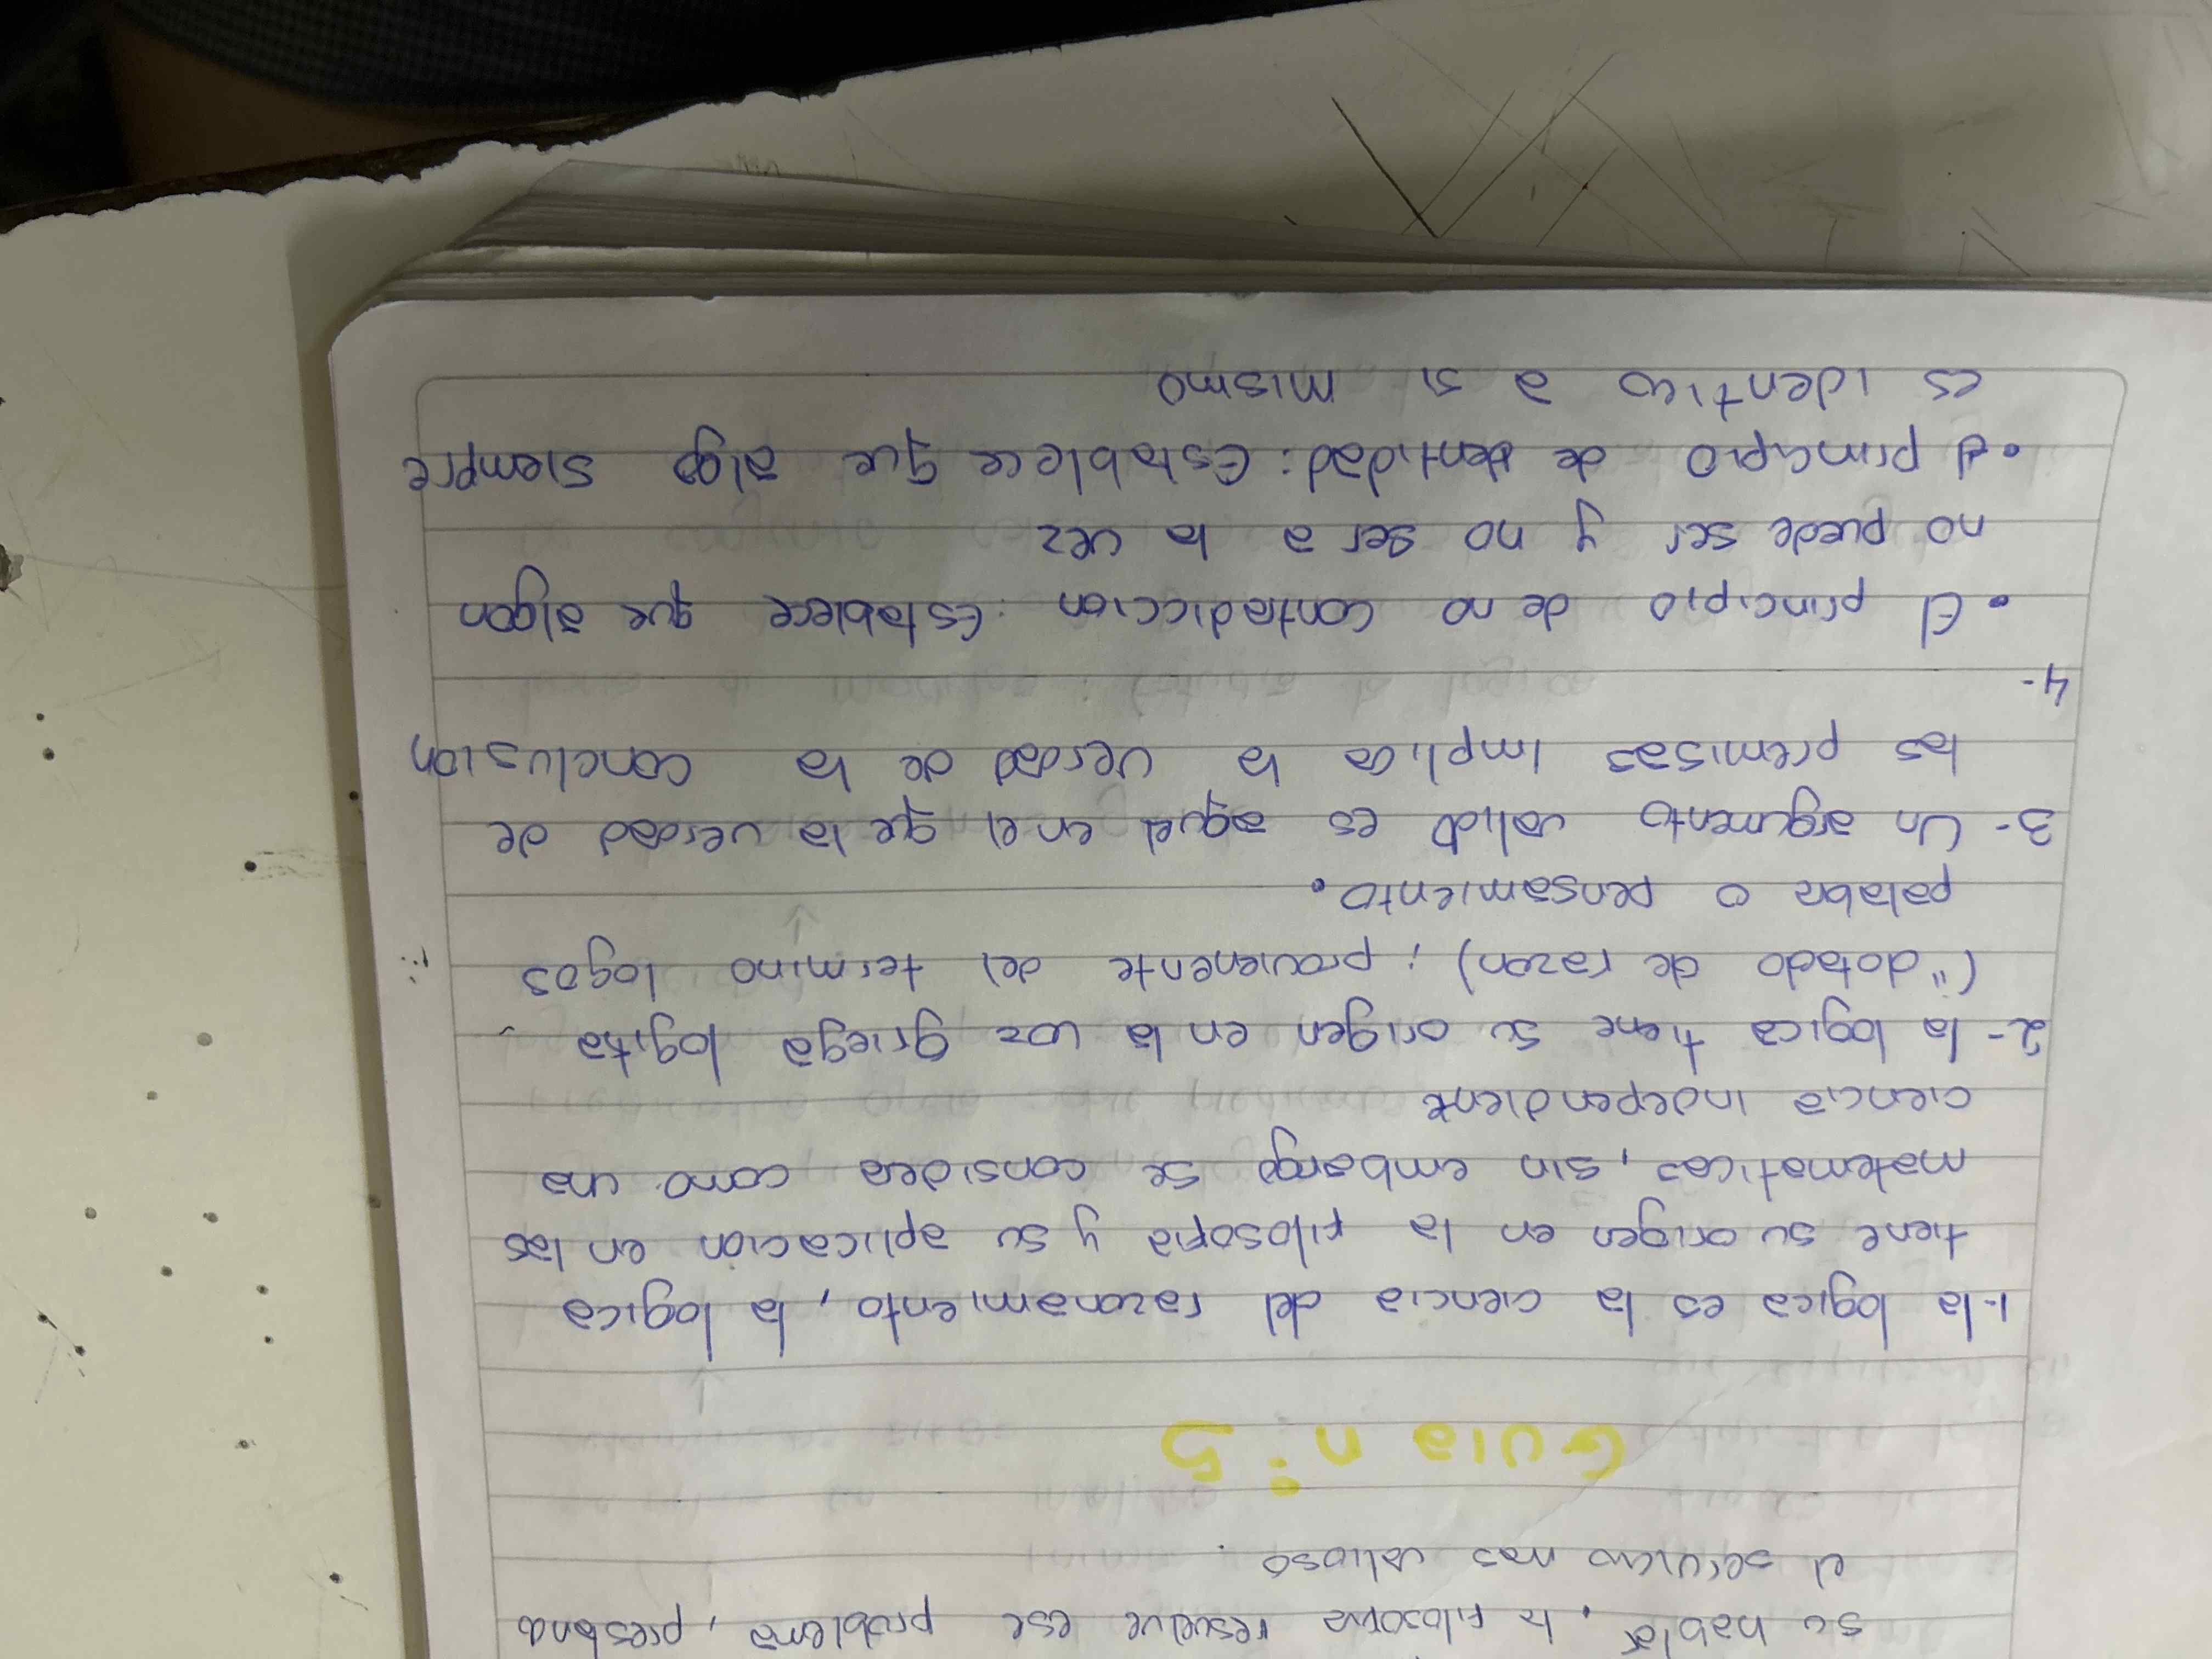 su hablar. la filosofia resuelve ese problema, prestando
el servicio mas valioso.
Guia n° 5
1-la logica es la ciencia del razonamiento, la logica
tiene su origen en la filosofia y su aplicacion en las
matematicas, sin embargo se considera como una
ciencia independiente
2- la logica tiene su origen en la voz griega logika
("dotado de razon) ; proveniente del termino logos
palabra o pensamiento.
3- Un argumento valido es aquel en el que la verdad de
las premisas implica la verdad de la conclusion
4-
• El principio de no contradiccion : Establece que algon
no puede ser y no ser a la vez
• el principio de identidad: Establece que algo siempre
es identico a si mismo